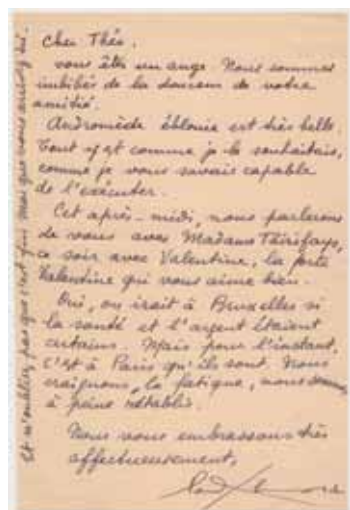 Cher Théo.
vous êtes un ange. Nous sommes
imbibés de la douceur de votre
amitié.
Andromède éblouie est très belle.
Tout y est comme je le souhaitais,
comme je vous savais capable
de l'exécuter.
Cet après-midi, nous parlerons
de vous avec Madame Thirifays,
ce soir avec Valentine, la
Valentine qui vous aime bien.
Oui, on irait à Bruxelles si
la santé et l'argent étaient
certains. Mais pour l'instant,
c'est à Paris qu'ils sont. Nous
craignons la fatigue, nous sommes
à peine rétablis.
Nous vous embrassons très
affectueusement,
Et n'oubliez pas que c'est fini mais que nous